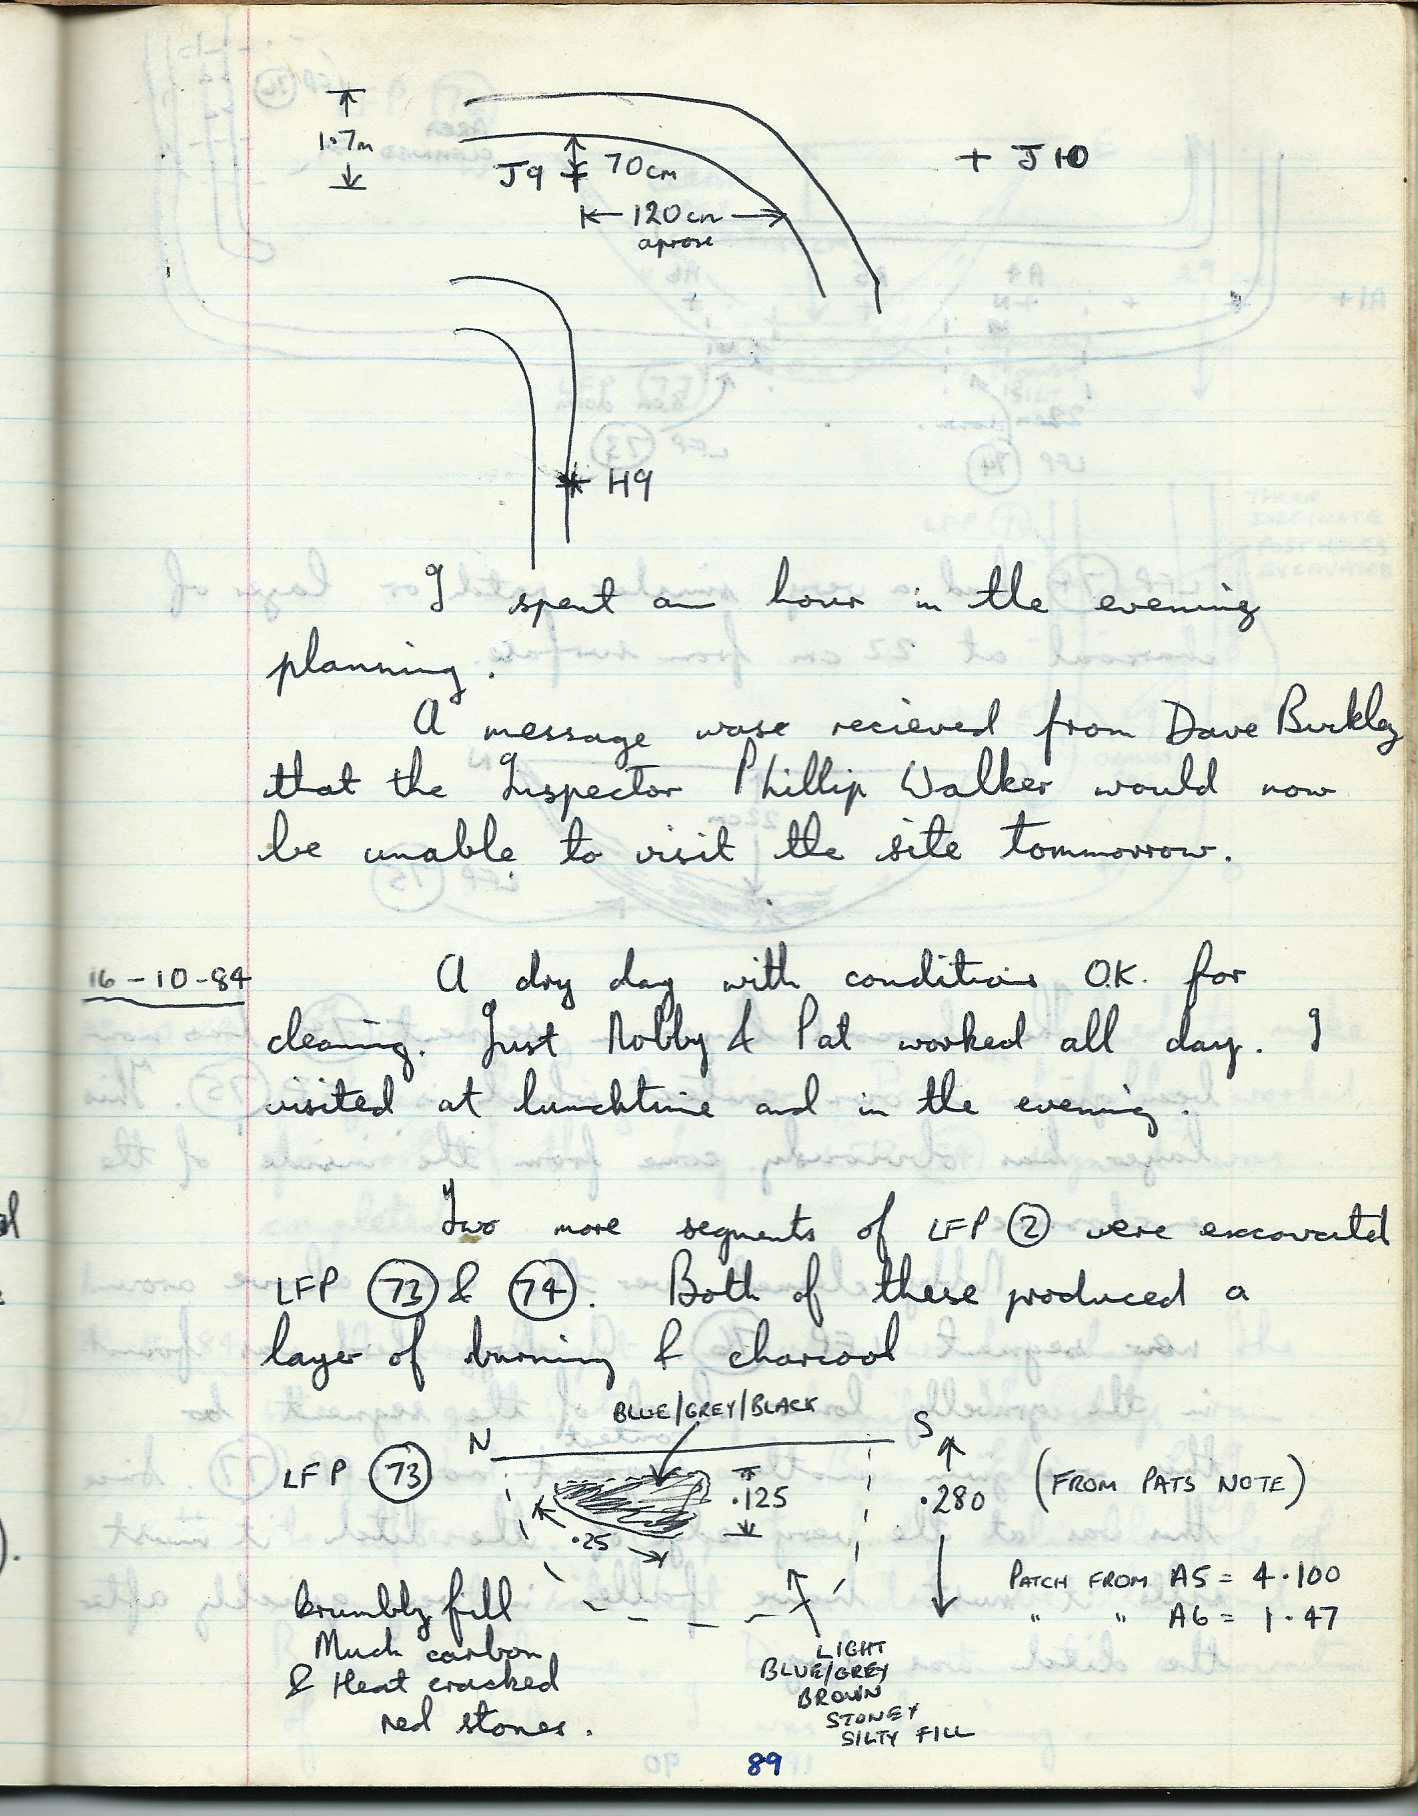 1.7m
J9 70cm
+ J10
120cm
aprose
H9
I spent an hour in the evening
planning.
A message wase recieved from Dave Buckley
that the Inspector Phillip Walker would now
be unable to visit the site tommorrow.
16-10-84
A dry day with conditions O.K. for
cleaning. Just Robby & Pat worked all day. I
visited at lunchtime and in the evening.
Two more segments of LFP 2 were excavated
LFP 73 & 74. Both of these produced a
layer of burning & charcoal
BLUE/GREY/BLACK
N S
LFP 73
.125
.280
(FROM PATS NOTE)
.25
PATCH FROM A5 = 4.100
" " A6 = 1.47
Crumbly fill
Much carbon
& Heat cracked
red stones.
LIGHT
BLUE/GREY
BROWN
STONEY
SILTY FILL
89